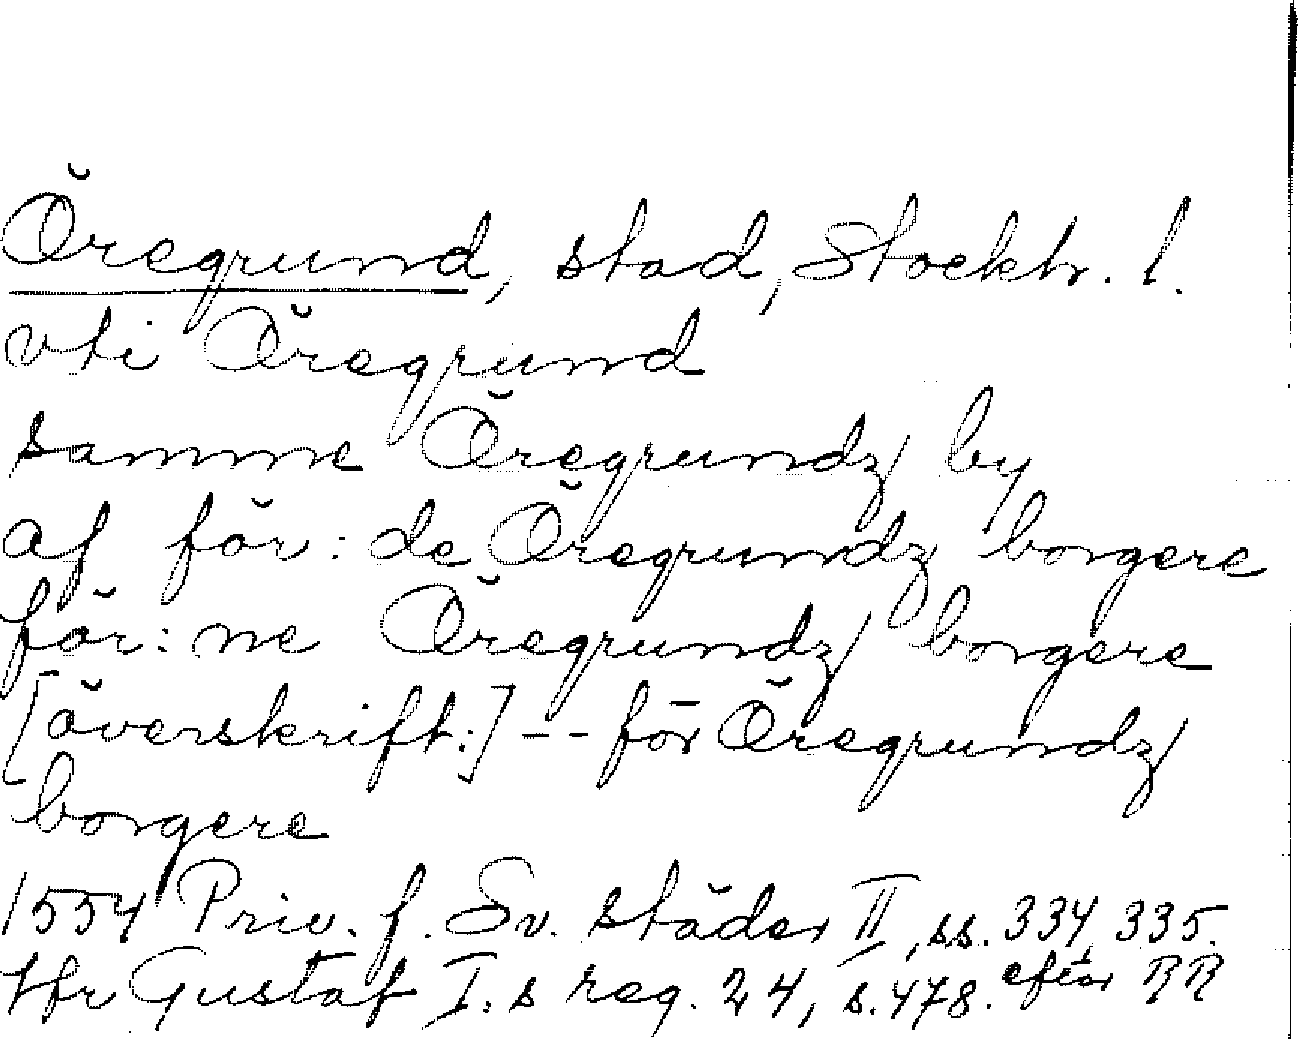 Öregrund, stad, Stockh. l.
vti Öregrund
samme Öregrundz by
af för: de Öregrundz borgere
för: ne Öregrundz borgere
[överskrift:] -- för Öregrundz
borgere
1554 Priv. f. Sv. städer II, ss. 334, 335.
Jfr Gustaf I:s reg. 24, s. 478. efter RR